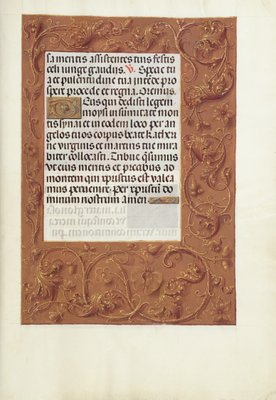 sa mentis assistentes tuis festis
celi iunge gaudijs. V. Specie tu
a et pulcritudine tua intende pro
spere procede et regna. Oremus.
Deus qui dedisti legem
moysi in summitate mon
tis synai et in eodem loco per an
gelos tuos corpus beate kather
ne virginis et martiris tue mira
biliter collocasti. Tribue quesumus
ut eius meritis et precibus ad
montem qui xpistus est valea
mus peruenire. per xpistum do
minum nostrum amen